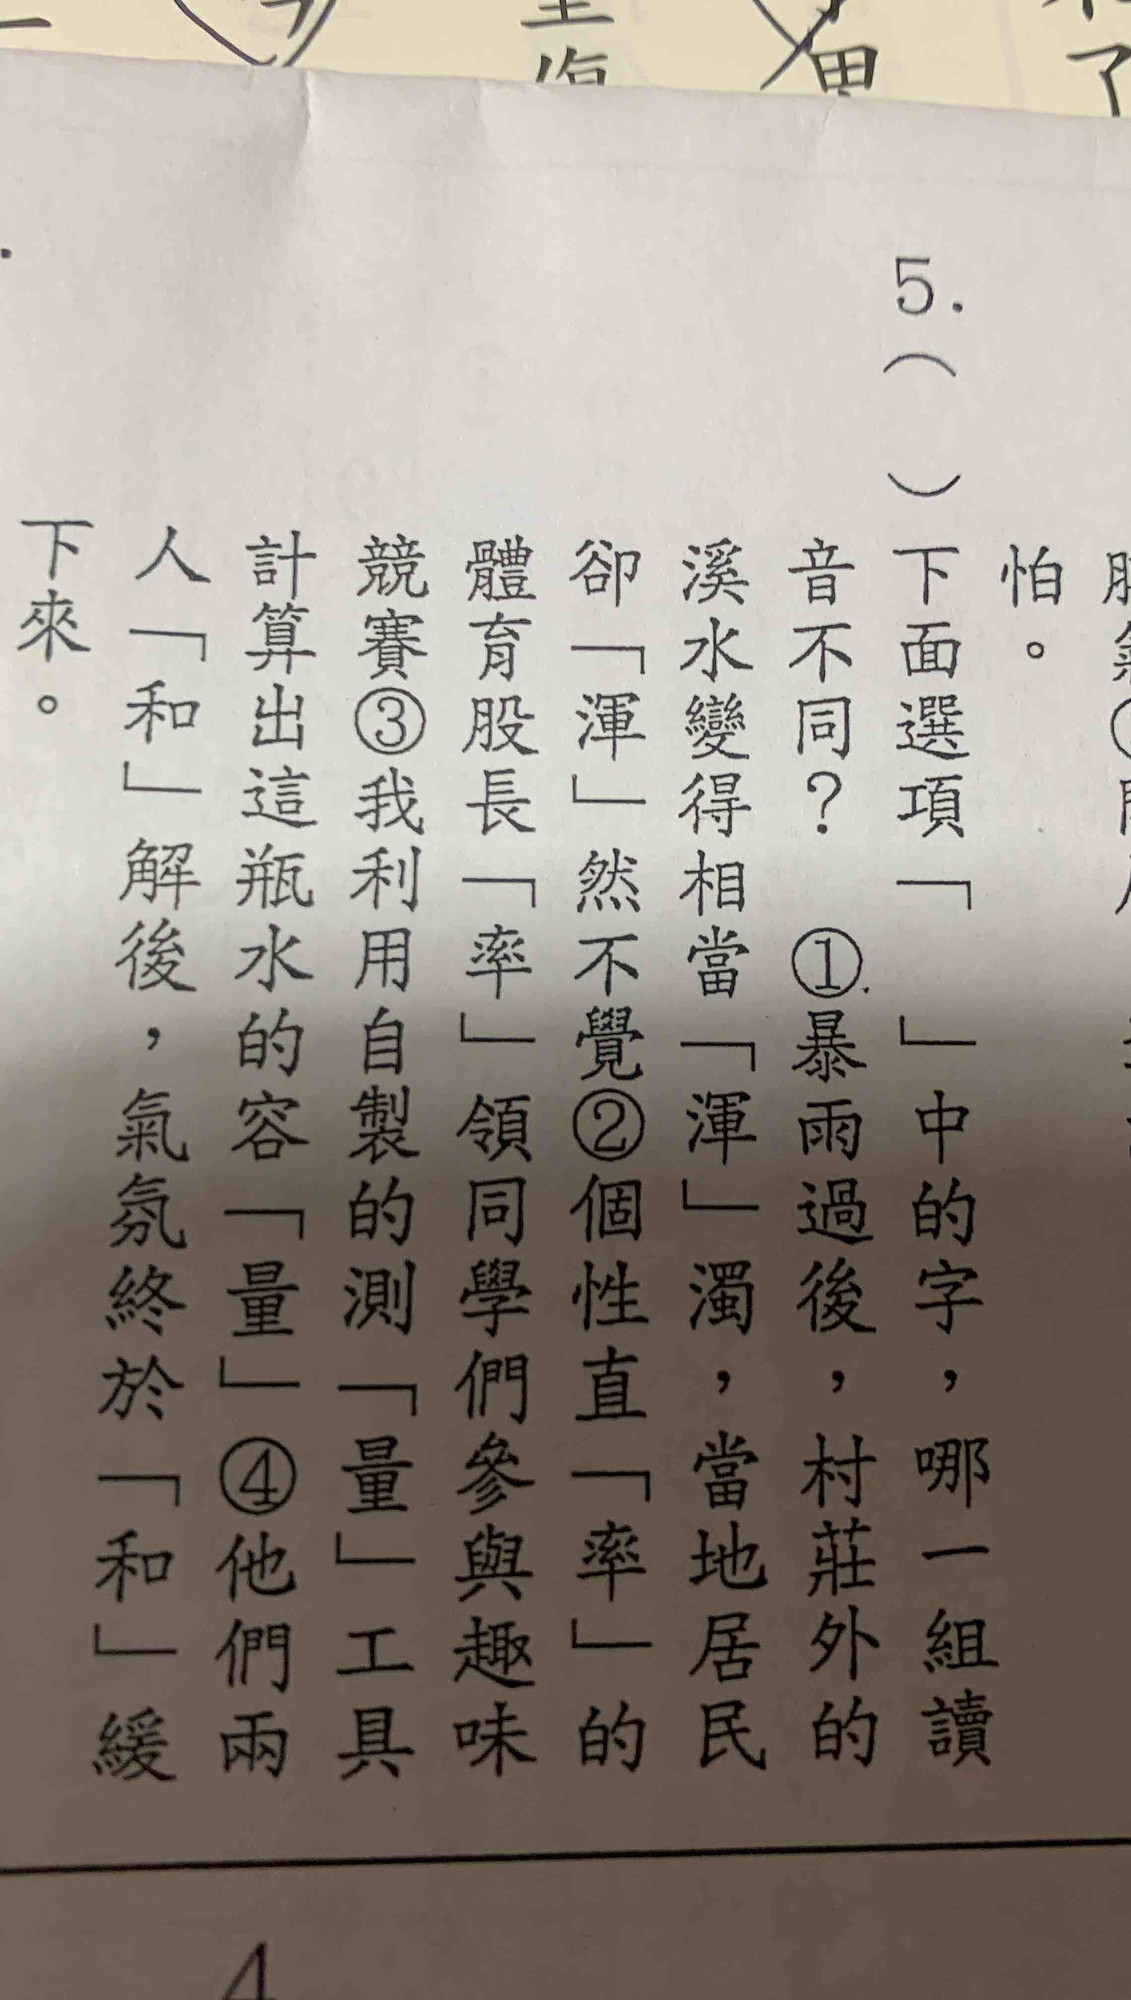 怕。
5.（　）下面選項「　」中的字，哪一組讀
音不同？　①暴雨過後，村莊外的
溪水變得相當「渾」濁，當地居民
卻「渾」然不覺②個性直「率」的
體育股長「率」領同學們參與趣味
競賽③我利用自製的測「量」工具
計算出這瓶水的容「量」④他們兩
人「和」解後，氣氛終於「和」緩
下來。
4